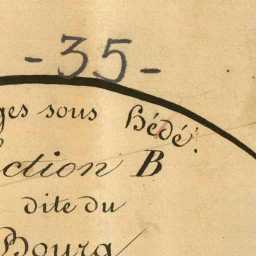 - 35 -
ges sous Bédé.
ection B
dite du
Bourg